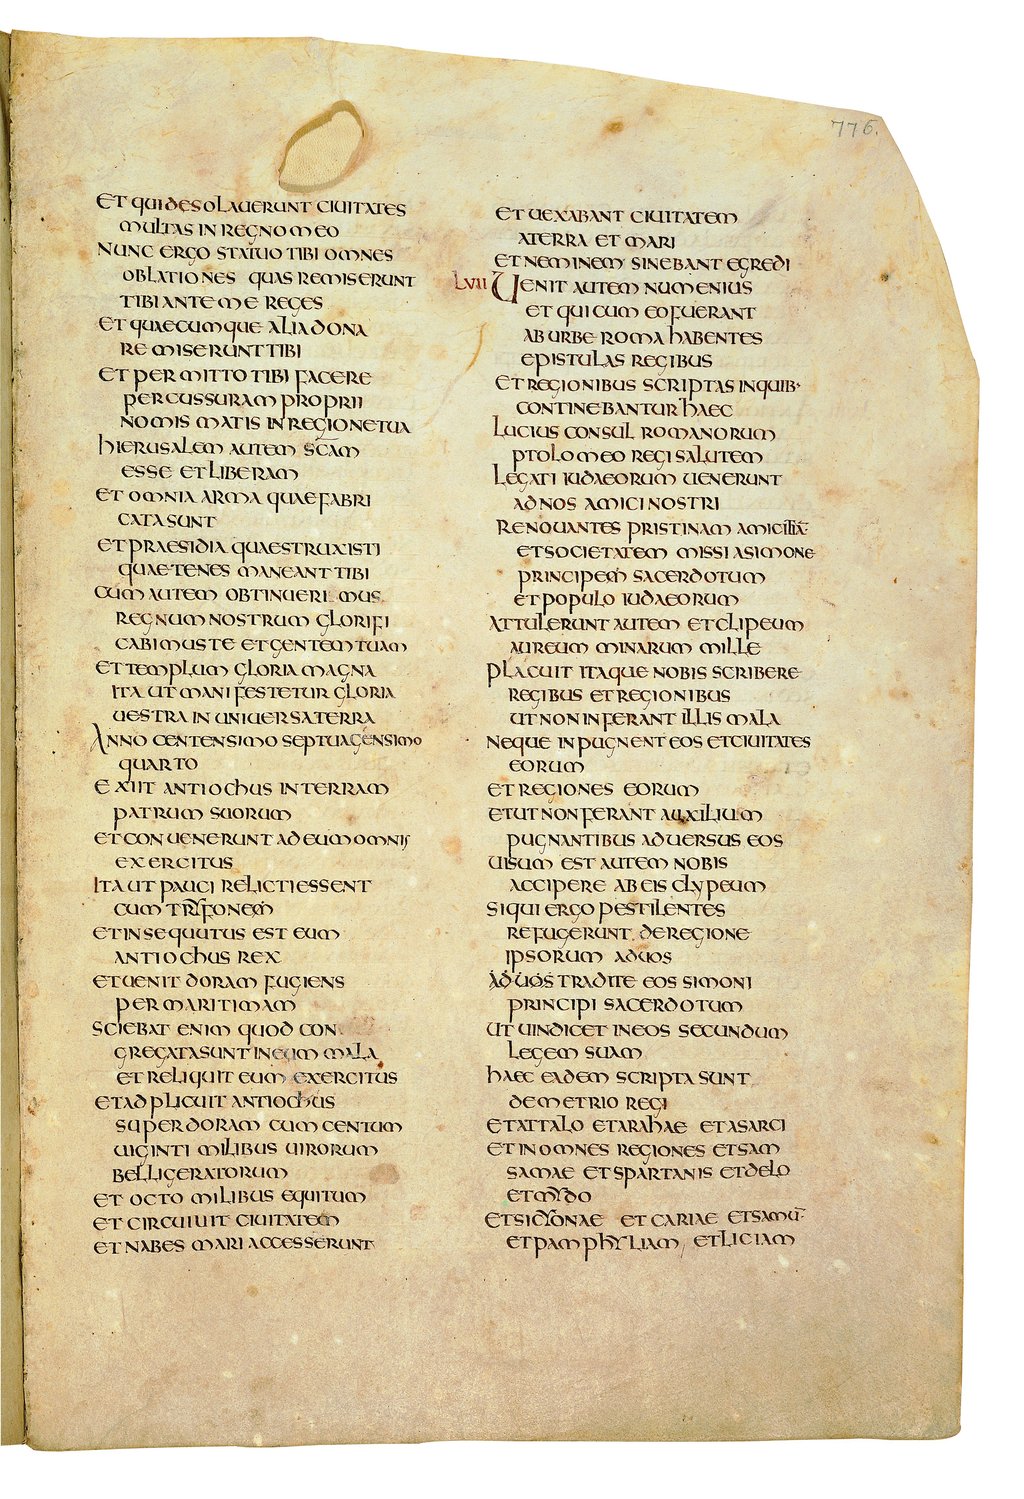 776.
ET QUI DESOLAUERUNT CIUITATES
MULTAS IN REGNO MEO
NUNC ERGO STATUO TIBI OMNES
OBLATIONES QUAS REMISERUNT
TIBI ANTE ME REGES
ET QUAECUMQUE ALIA DONA
REMISERUNT TIBI
ET PERMITTO TIBI FACERE
PERCUSSURAM PROPRII
NOMISMATIS IN REGIONE TUA
HIERUSALEM AUTEM SCAM
ESSE ET LIBERAM
ET OMNIA ARMA QUAE FABRI
CATA SUNT
ET PRAESIDIA QUAE STRUXISTI
QUAE TENES MANEANT TIBI
CUM AUTEM OBTINUERIMUS
REGNUM NOSTRUM GLORIFI
CABIMUS TE ET GENTEM TUAM
ET TEMPLUM GLORIA MAGNA
ITA UT MANIFESTETUR GLORIA
UESTRA IN UNIUERSA TERRA
ANNO CENTENSIMO SEPTUAGENSIMO
QUARTO
EXIIT ANTIOCHUS IN TERRAM
PATRUM SUORUM
ET CONUENERUNT AD EUM OMNIS
EXERCITUS
ITA UT PAUCI RELICTI ESSENT
CUM TRYFONEM
ET INSEQUUTUS EST EUM
ANTIOCHUS REX
ET UENIT DORAM FUGIENS
PER MARITIMAM
SCIEBAT ENIM QUOD CON
GREGATA SUNT IN EUM MALA
ET RELIQUIT EUM EXERCITUS
ET ADPLICUIT ANTIOCHUS
SUPER DORAM CUM CENTUM
UIGINTI MILIBUS UIRORUM
BELLIGERATORUM
ET OCTO MILIBUS EQUITUM
ET CIRCUIUIT CIUITATEM
ET NABES MARI ACCESSERUNT
ET UEXABANT CIUITATEM
A TERRA ET MARI
ET NEMINEM SINEBANT EGREDI
LVII UENIT AUTEM NUMENIUS
ET QUI CUM EO FUERANT
AB URBE ROMA HABENTES
EPISTULAS REGIBUS
ET REGIONIBUS SCRIPTAS IN QUIB·
CONTINEBANTUR HAEC
LUCIUS CONSUL ROMANORUM
PTOLOMEO REGI SALUTEM
LEGATI IUDAEORUM UENERUNT
AD NOS AMICI NOSTRI
RENOUANTES PRISTINAM AMICITIĀ
ET SOCIETATEM MISSI A SIMONE
PRINCIPEM SACERDOTUM
ET POPULO IUDAEORUM
ATTULERUNT AUTEM ET CLIPEUM
AUREUM MINARUM MILLE
PLACUIT ITAQUE NOBIS SCRIBERE
REGIBUS ET REGIONIBUS
UT NON INFERANT ILLIS MALA
NEQUE INPUGNENT EOS ET CIUITATES
EORUM
ET REGIONES EORUM
ET UT NON FERANT AUXILIUM
PUGNANTIBUS ADUERSUS EOS
UISUM EST AUTEM NOBIS
ACCIPERE AB EIS CLYPEUM
SI QUI ERGO PESTILENTES
REFUGERUNT DE REGIONE
IPSORUM AD UOS
AD UOS TRADITE EOS SIMONI
PRINCIPI SACERDOTUM
UT UINDICET IN EOS SECUNDUM
LEGEM SUAM
HAEC EADEM SCRIPTA SUNT
DEMETRIO REGI
ET ATTALO ET ARAHAE ET ASARCI
ET IN OMNES REGIONES ET SAM
SAMAE ET SPARTANIS ET DELO
ET MYDO
ET SICYONAE ET CARIAE ET SAMŪ
ET PAMPHYLIAM ET LICIAM